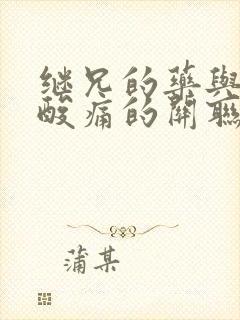 继兄的藥與
酸痛的關聯
蒲某